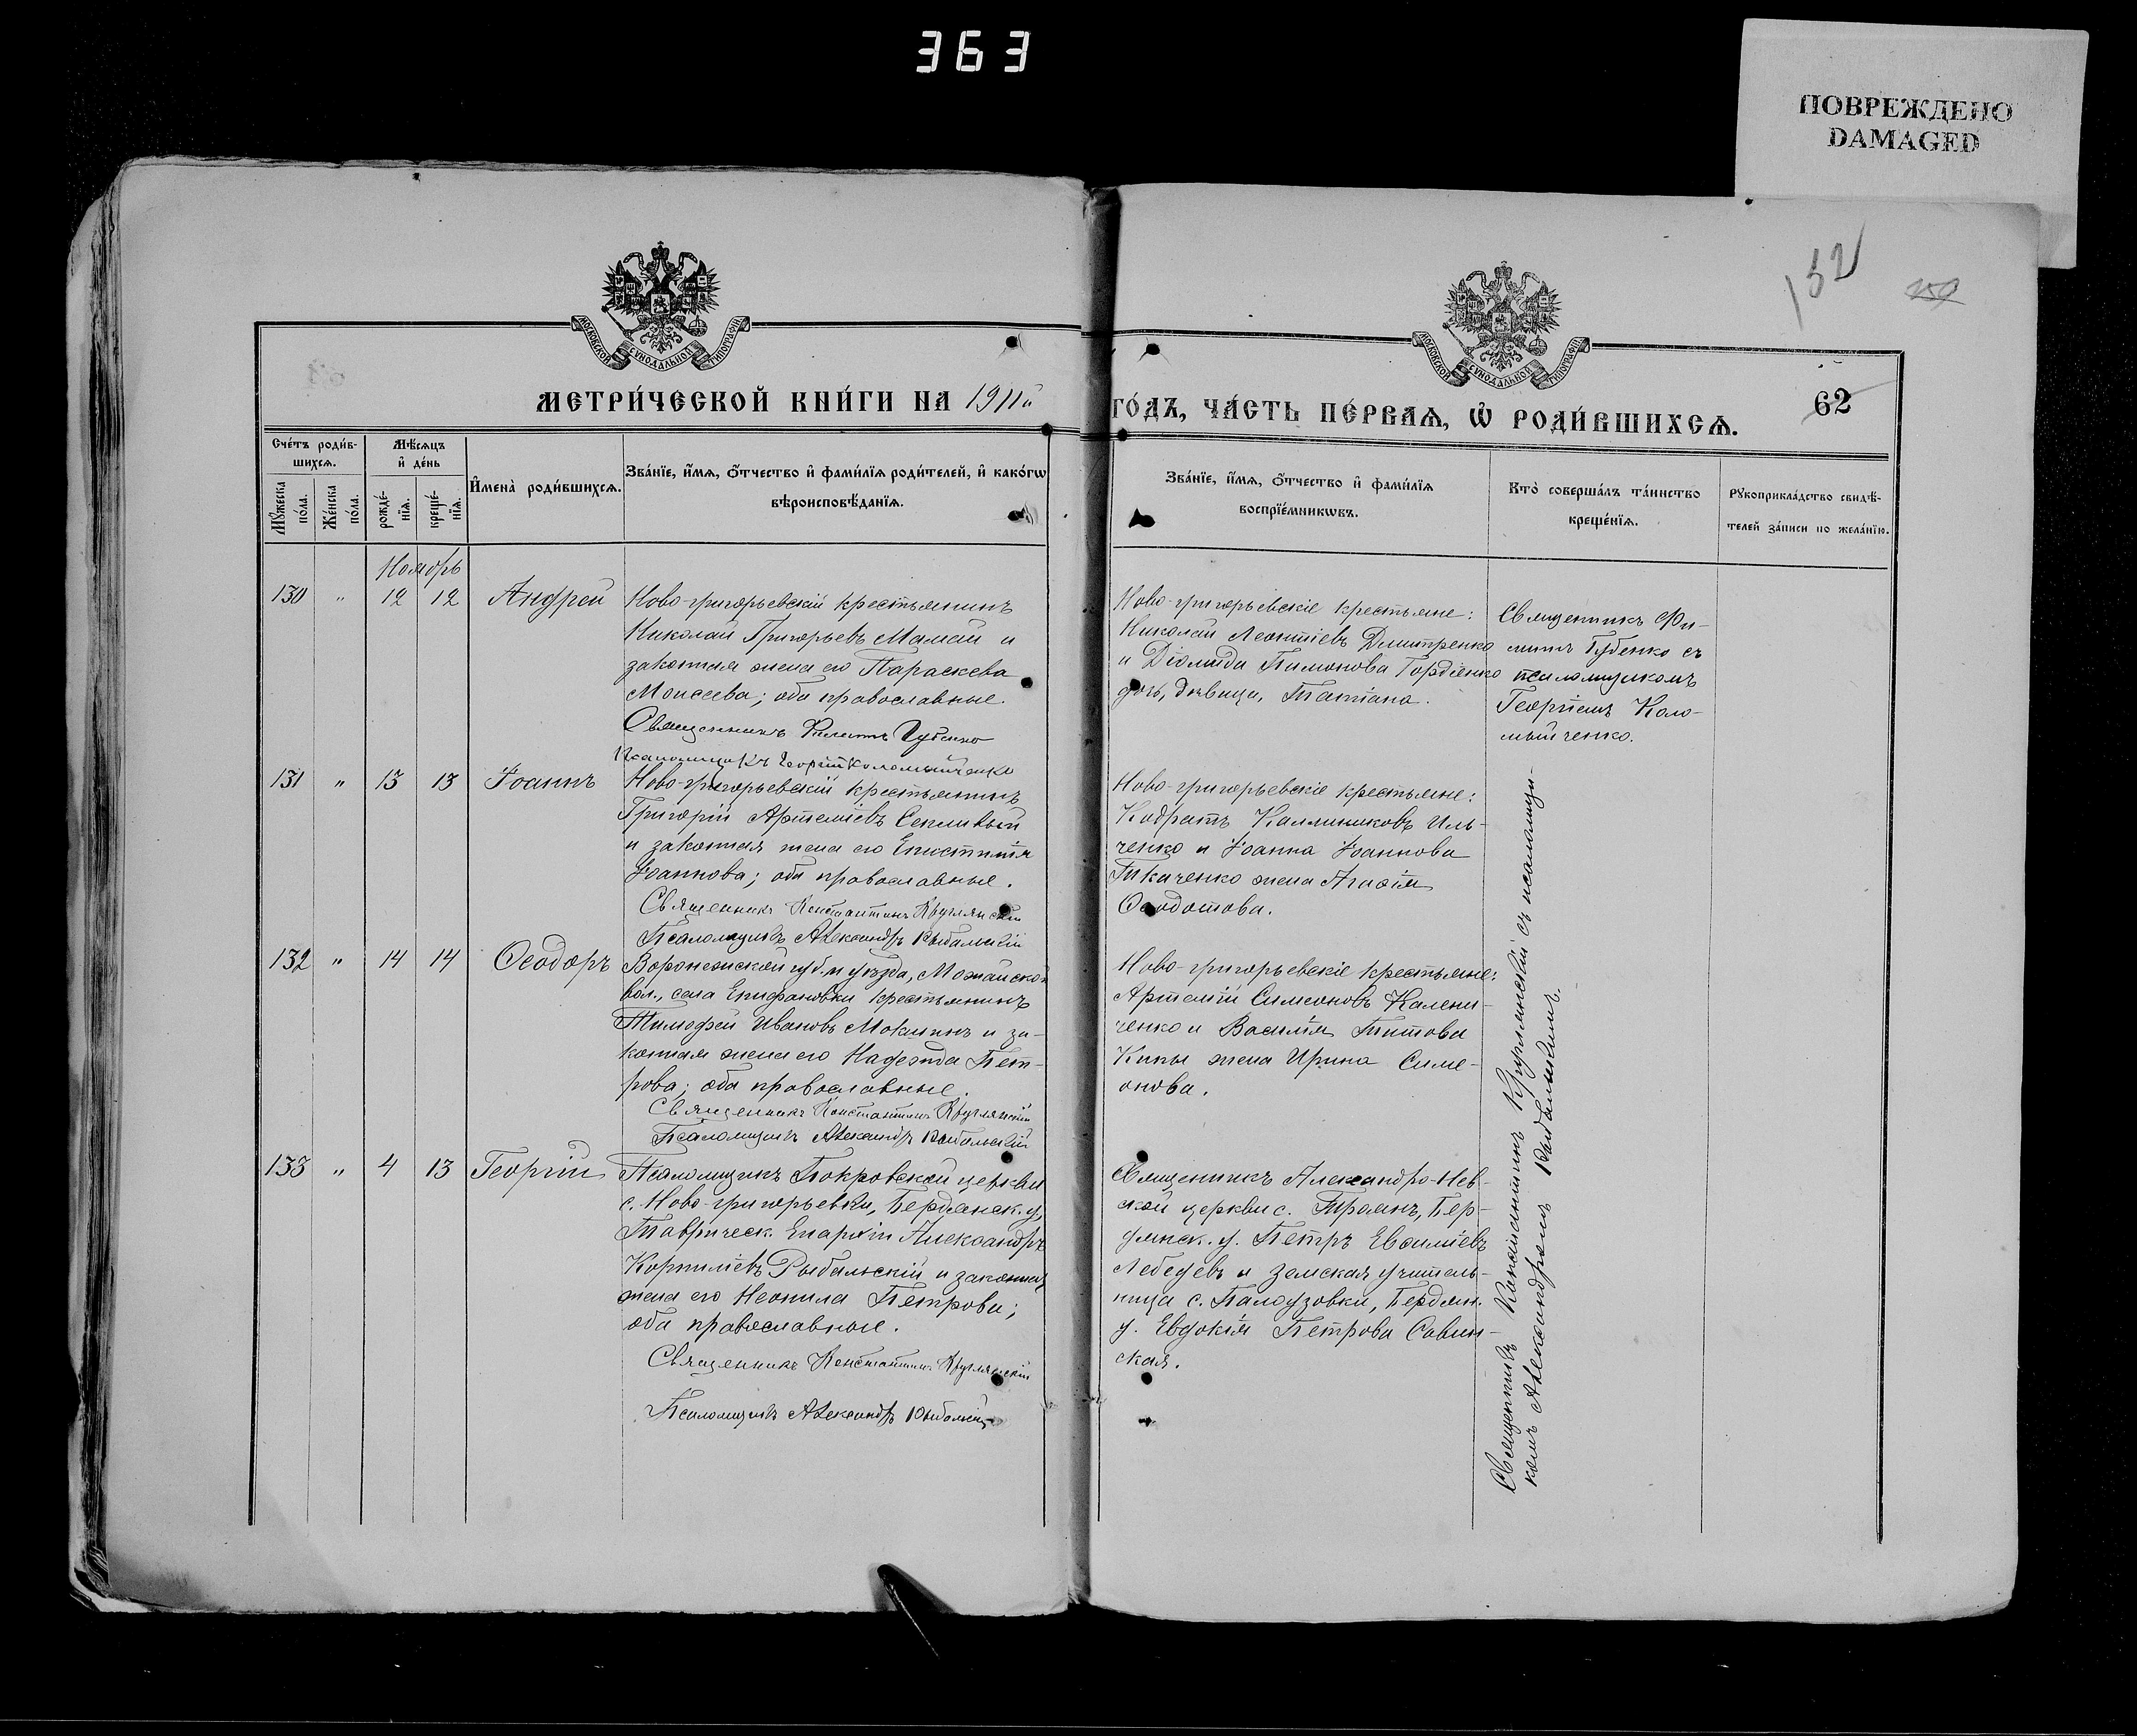 363
ПОВРЕЖДЕНО
DAMAGED
132
МОСКОВСКОЙ СѴНОДАЛЬНОЙ ТИПОГРАФІИ
МОСКОВСКОЙ СѴНОДАЛЬНОЙ ТИПОГРАФІИ
62
МЕТРИ́ЧЕСКОЙ КНИ́ГИ НА 1911й ГО́ДЪ, ЧА́СТЬ ПЕ́РВАѦ, Ѡ҆ РОДИ́ВШИХСѦ.
Сче́тъ роди́в-
шихсѧ.
Мꙋ́жеска по́ла.
Же́нска по́ла.
Мѣ́сѧцъ
и҆ де́нь
рожде́-
нїѧ.
креще́-
нїѧ.
И҆мена̀ роди́вшихсѧ.
Зва́нїе, и҆́мѧ, ѻ҆́тчество и҆ фами́лїѧ роди́телей, и҆ како́гѡ
вѣроисповѣ́данїѧ.
Зва́нїе, и҆́мѧ, ѻ҆́тчество и҆ фами́лїѧ
воспрїе́мникѡвъ.
Кто̀ соверша́лъ та́инство
креще́нїѧ.
Рꙋкоприкла́дство свидѣ́-
телей за́писи по жела́нїю.
Ноябрь
130 " 12 12 Андрей
Ново-григорьевскій крестьянинъ
Николай Григорьевъ Мамай и
законная жена его Параскева
Моисеева; оба православные.
Священникъ Филиппъ Губенко
Псаломщикъ Георгій Коломыйченко
Ново-григорьевскіе крестьяне:
Николай Леонтіевъ Дмитренко
и Діомида Пимонова Гордіенко
дочь, дѣвица, Татіана.
Священникъ Фи-
липпъ Губенко съ
псаломщикомъ
Георгіемъ Коло-
мыйченко.
131 " 13 13 Іоаннъ
Ново-григорьевскій крестьянинъ
Григорій Артеміевъ
и законная жена его Епистимія
Іоаннова; оба православные.
Священникъ Константинъ Круглянскій
Псаломщикъ Александръ Рыбальскій
Ново-григорьевскіе крестьяне:
Кодратъ Каллиниковъ Иль-
ченко и Іоанна Іоаннова
Ткаченко жена Агафія
Ѳеодотова.
132 " 14 14 Ѳеодоръ
Воронежской губ. и уѣзда, Можайской
вол., села Епифановки крестьянинъ
Тимофей Ивановъ Мокшинъ и за-
конная жена его Надежда Пет-
рова; оба православные.
Священникъ Константинъ Круглянскій
Псаломщикъ Александръ Рыбальскій
Ново-григорьевскіе крестьяне:
Артемій Симеоновъ Калени-
ченко и Василія Титова
Кипы жена Ирина Симе-
онова.
133 " 4 13 Георгій
Псаломщикъ Покровской церкви
с. Ново-григорьевки, Бердянск. у.
Таврическ. Епархіи Александръ
Корниліевъ Рыбальскій и законная
жена его Неонила Петрова;
оба православные.
Священникъ Константинъ Круглянскій
Псаломщикъ Александръ Рыбальскій
Священникъ Александро-Нев-
ской церкви с. Троянъ, Бер-
дянск. у. Петръ Евсиміевъ
Лебедевъ и земская учитель-
ница с. Палаузовки, Бердян.
у. Евдокія Петрова Савин-
ская.
Священникъ Константинъ Круглянскій съ псаломщи-
комъ Александромъ Рыбальскимъ.